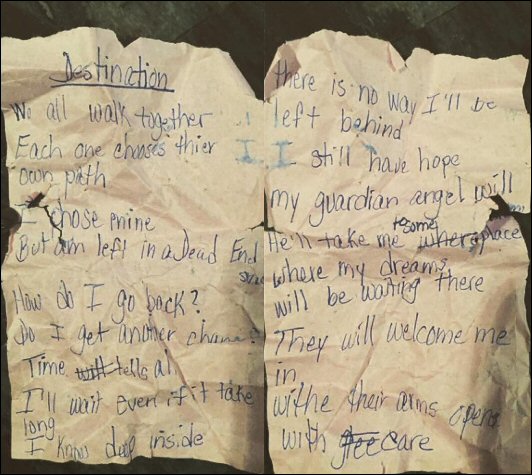 Destination
We all walk together
Each one chooses thier
own path
I chose mine
But am left in a Dead End
How do I go back?
Do I get another chance?
Time will tells al
I'll wait even if it take
long
I know deep inside
there is no way I'll be
left behind
I still have hope
my guardian angel will
He'll take me to some where place
where my dreams
will be waiting there
They will welcome me
in
withe their arms opens
with care